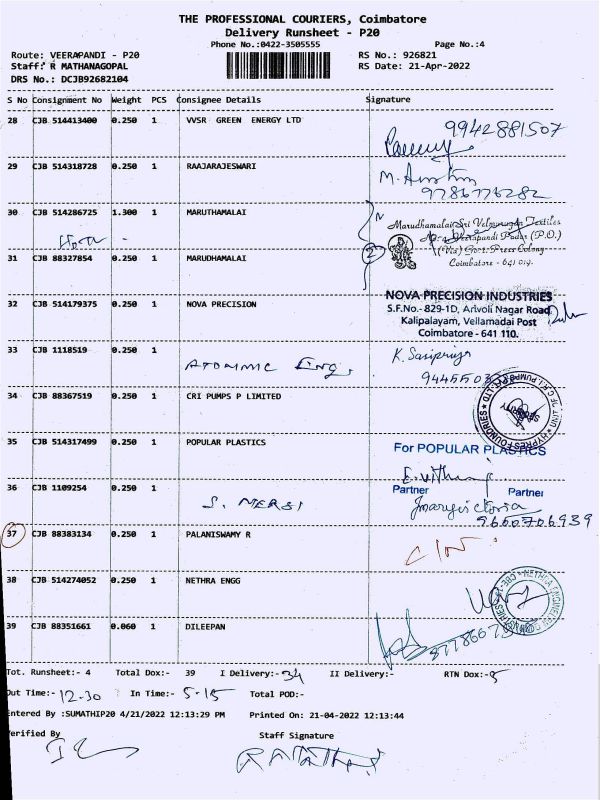 THE PROFESSIONAL COURIERS, Coimbatore
Delivery Runsheet - P20
Phone No.:0422-3505555
Page No.:4
Route: VEERAPANDI - P20
RS No.: 926821
Staff: R MATHANAGOPAL
RS Date: 21-Apr-2022
DRS No.: DCJB92682104
S No Consignment No Weight PCS Consignee Details Signature
28 CJB 514413400 0.250 1 VVSR GREEN ENERGY LTD
9942881507
29 CJB 514318728 0.250 1 RAAJARAJESWARI
9786776282
30 CJB 514286725 1.300 1 MARUTHAMALAI
Marudhamalai Sri Velmurugan Textiles
Veerapandi Pudur (P.O.)
(Via) Govt. Press Colony
Coimbatore - 641 019.
31 CJB 88327854 0.250 1 MARUDHAMALAI
2
32 CJB 514179375 0.250 1 NOVA PRECISION
NOVA PRECISION INDUSTRIES
S.F.No.- 829-1D, Arivoli Nagar Road,
Kalipalayam, Vellamadai Post
Coimbatore - 641 110.
33 CJB 1118519 0.250 1
ATOMMIC Eng,
K. Saripriya
34 CJB 88367519 0.250 1 CRI PUMPS P LIMITED
SECURITY
35 CJB 514317499 0.250 1 POPULAR PLASTICS
For POPULAR PLASTICS
Partner Partner
36 CJB 1109254 0.250 1
S. MERSI
9660706939
37 CJB 88383134 0.250 1 PALANISWAMY R
38 CJB 514274052 0.250 1 NETHRA ENGG
39 CJB 88351661 0.060 1 DILEEPAN
Tot. Runsheet:- 4 Total Dox:- 39 I Delivery:- 34 II Delivery:- RTN Dox:- 5
Out Time:- 12-30 In Time:- 5-15 Total POD:-
Entered By :SUMATHIP20 4/21/2022 12:13:29 PM Printed On: 21-04-2022 12:13:44
Verified By
Staff Signature